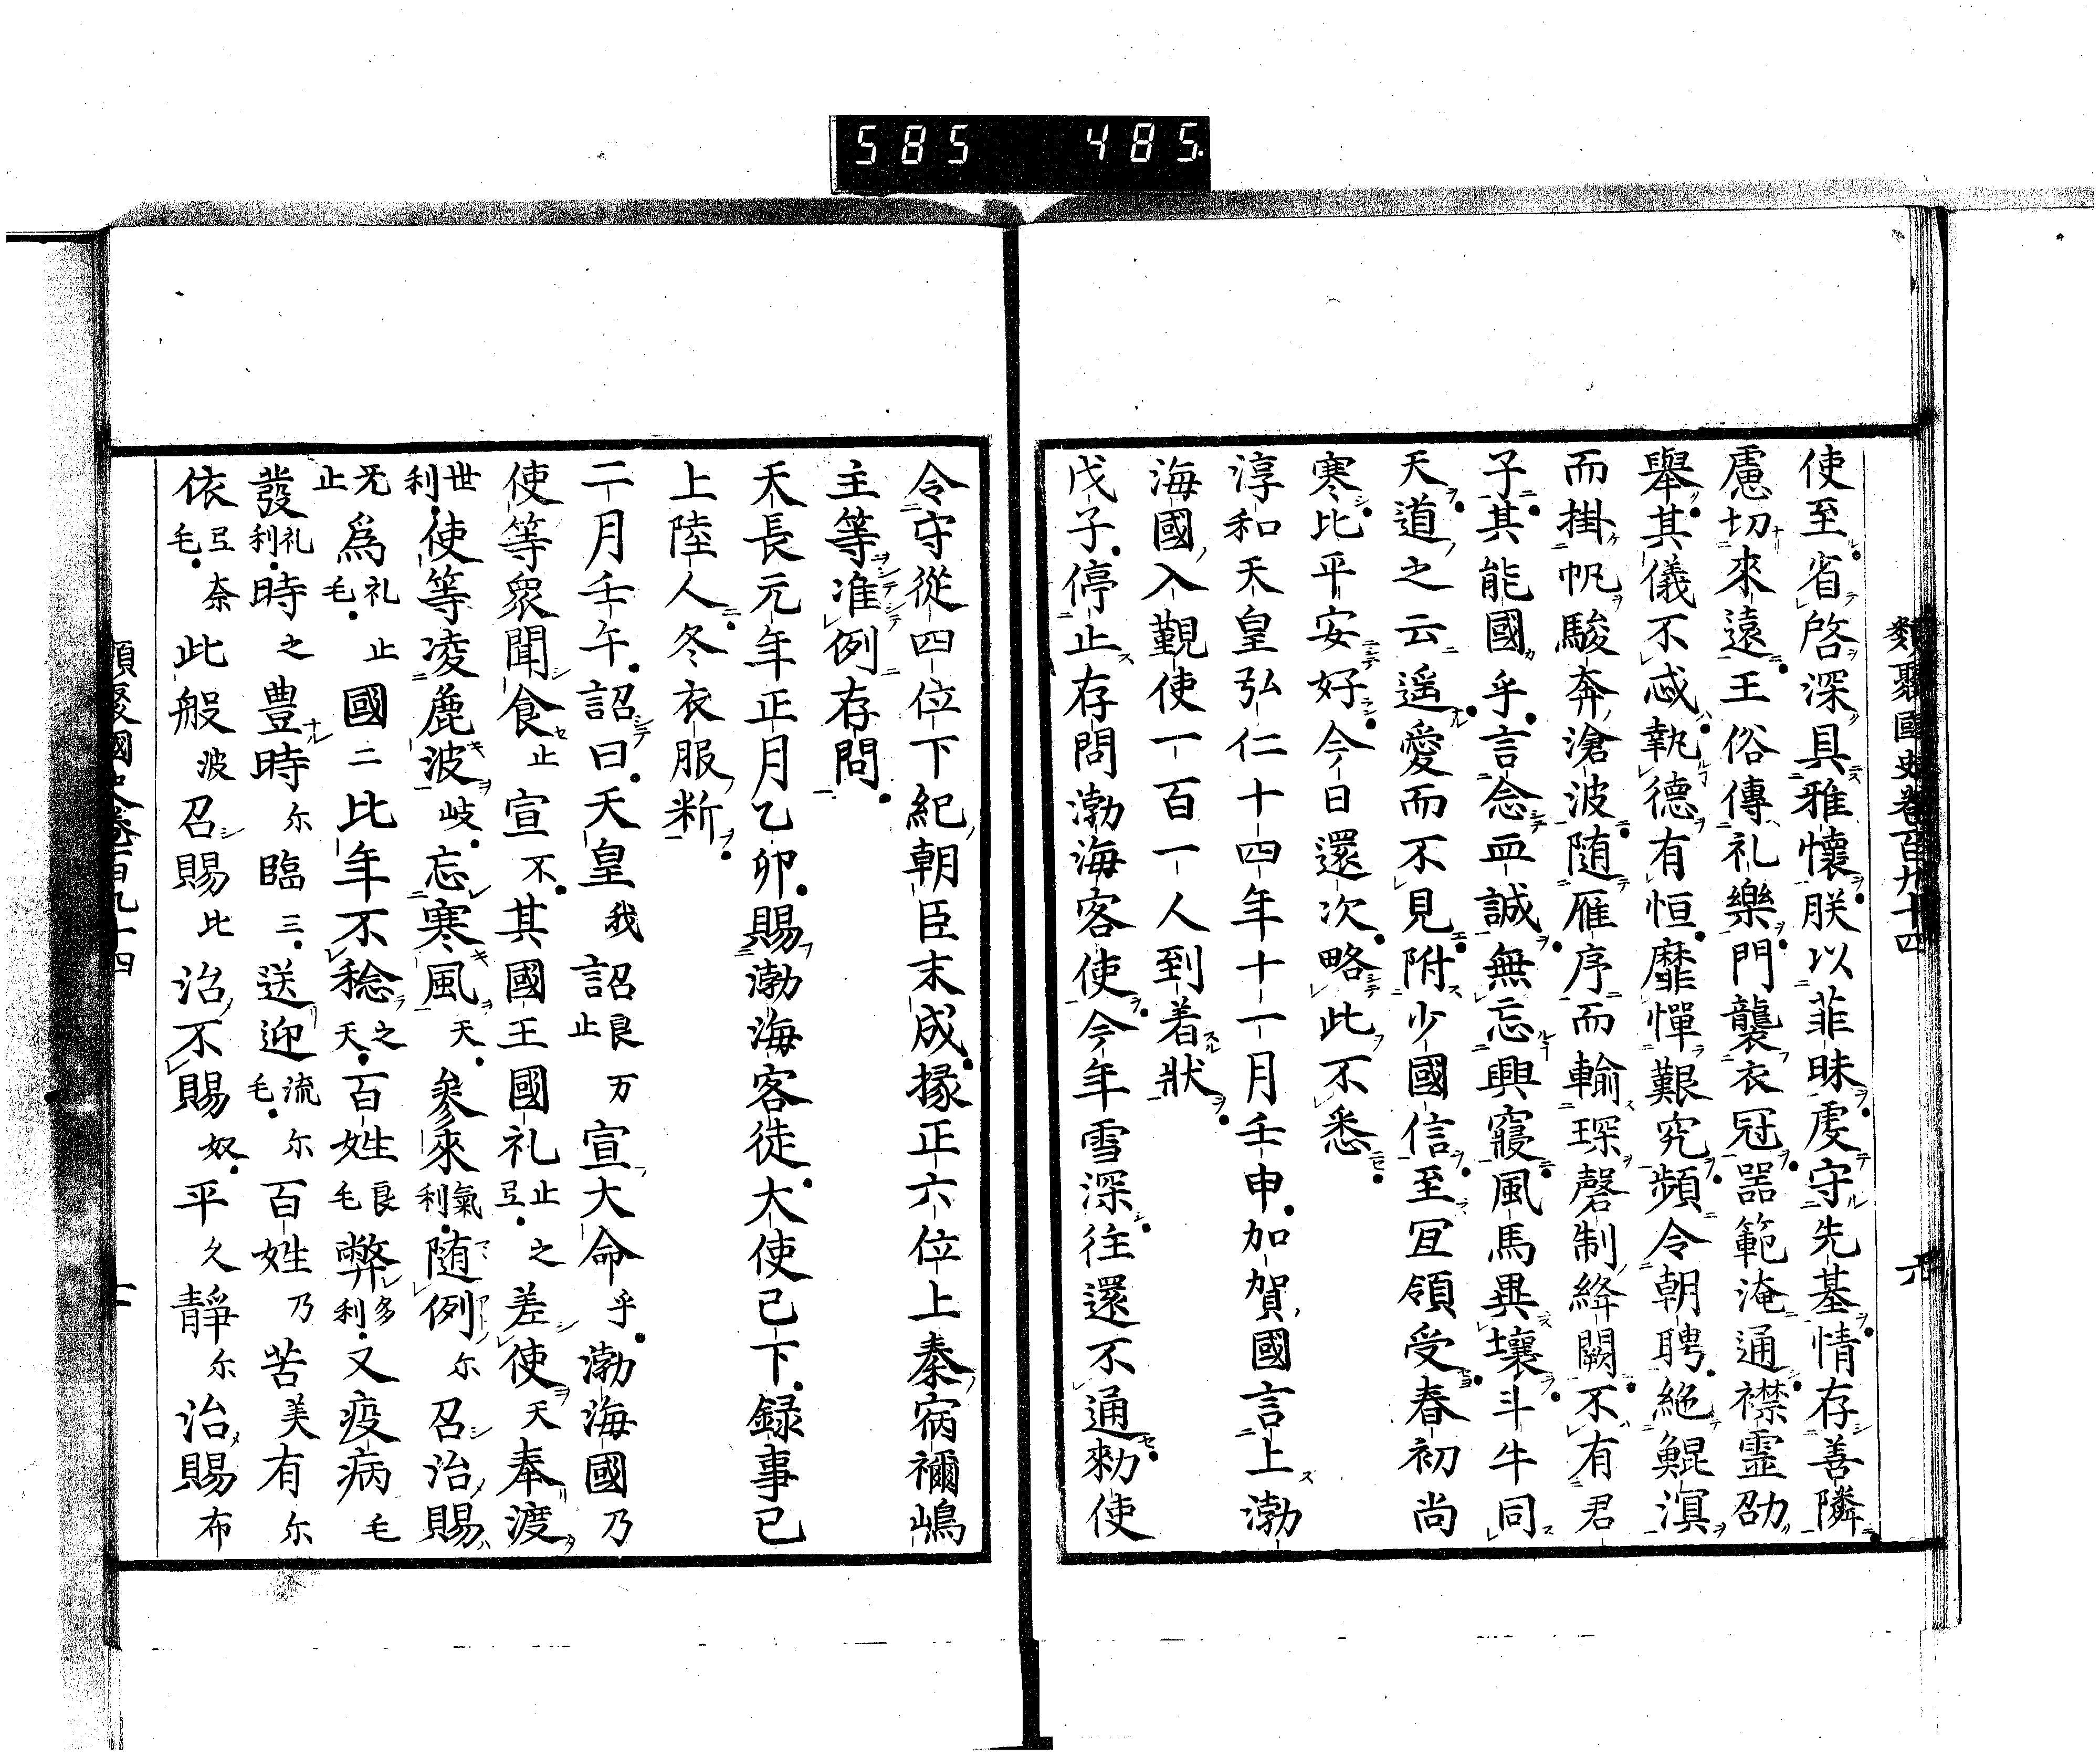 585 485
類聚國史卷百九十四 六
使至省啓深具雅懷朕以菲昧虔守先基情存善隣
慮切來遠王俗傳礼樂門襲衣冠器範淹通襟霊劭
舉其儀不忒執德有恒靡憚艱究頻令朝聘絶鯤溟
而掛帆駿奔滄波随雁序而輸琛磬制絳闕不有君
子其能國乎言念血誠無忘興寢風馬異壤斗牛同
天道之云遥愛而不見附少國信至宜領受春初尚
寒比平安好今日還次略此不悉
淳和天皇弘仁十四年十一月壬申加賀國言上渤
海國入覲使一百一人到着狀
戊子停止存問渤海客使今年雪深往還不通勅使
令守從四位下紀朝臣末成掾正六位上秦宿禰嶋
主等准例存問
天長元年正月乙卯賜渤海客徒大使已下録事已
上陸人冬衣服料
二月壬午詔曰天皇我詔良止万宣大命乎渤海國乃
使等衆聞食止宣不其國王國礼止弖之差使天奉渡
世利使等凌麁波岐忘寒風天參來氣利随例尓召治賜
无止爲礼毛止國二比年不稔之天百姓良毛弊多利又疫病毛
發礼利時之豊時尓臨三送迎流毛尓百姓乃苦美有尓
依弖毛奈此般波召賜比治不賜奴平久靜尓治賜布